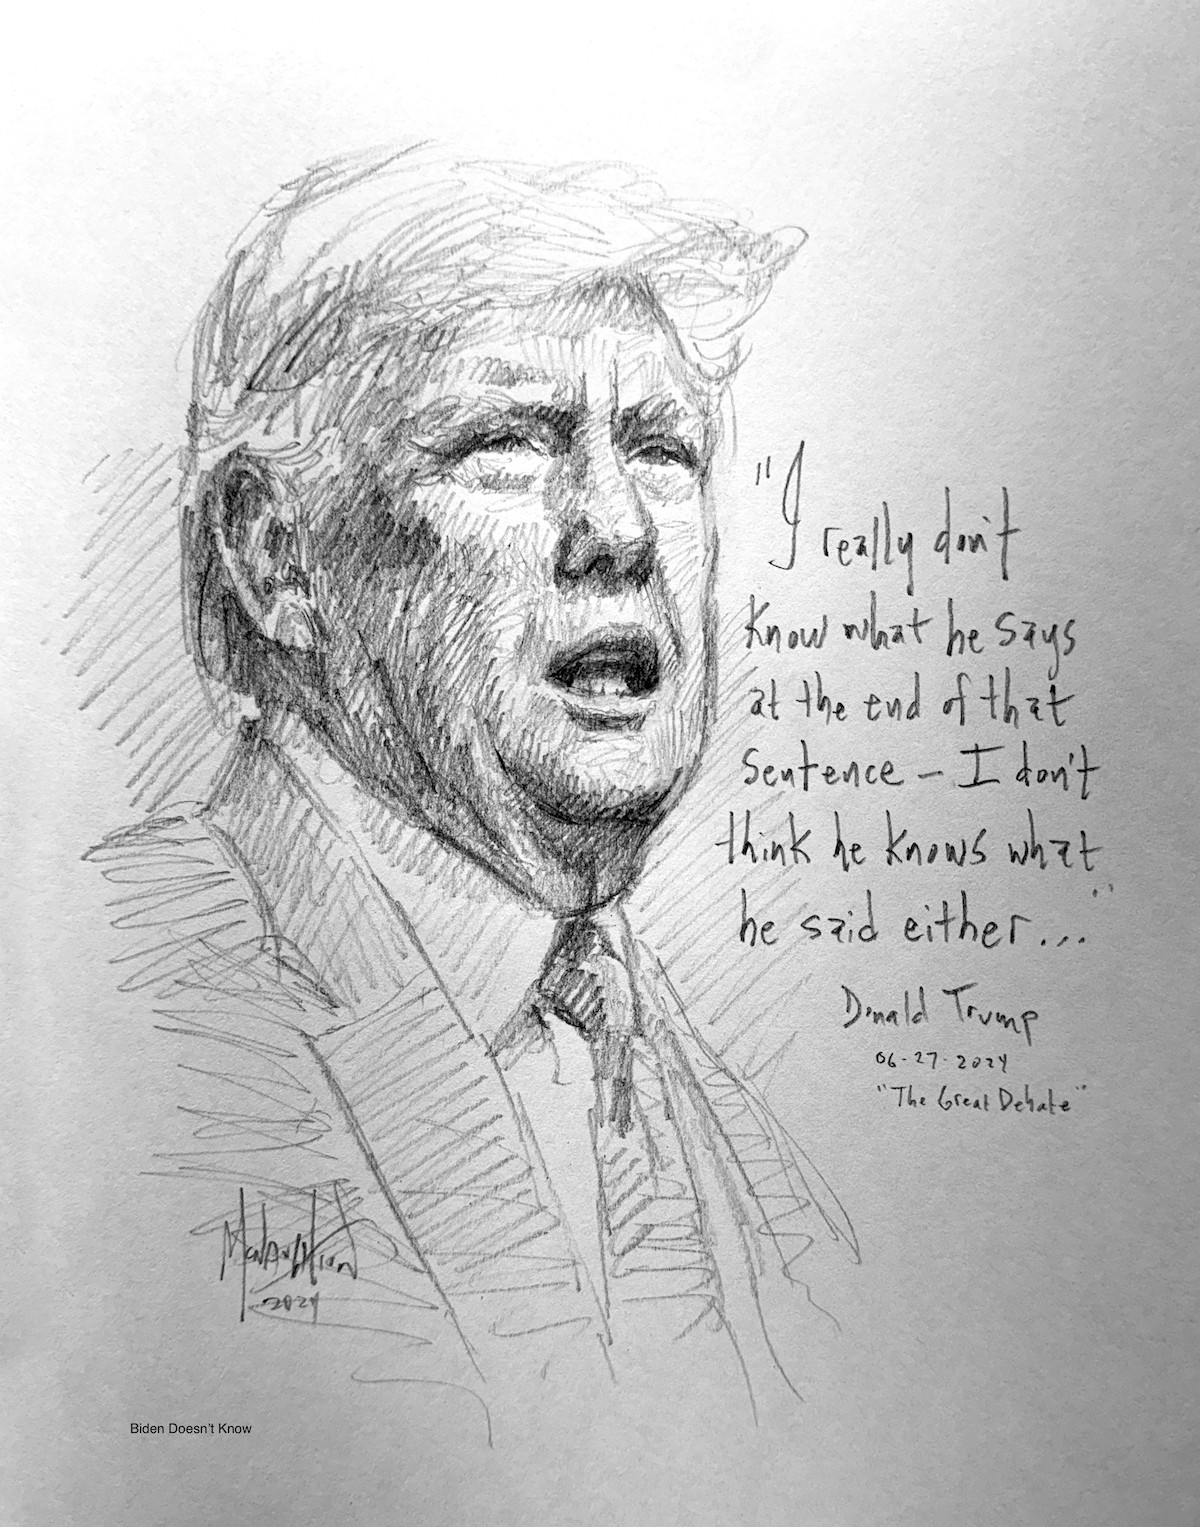 "I really don't
know what he says
at the end of that
sentence – I don't
think he knows what
he said either..."
Donald Trump
06-27-2024
"The Great Debate"
McNaughton
2024
Biden Doesn't Know